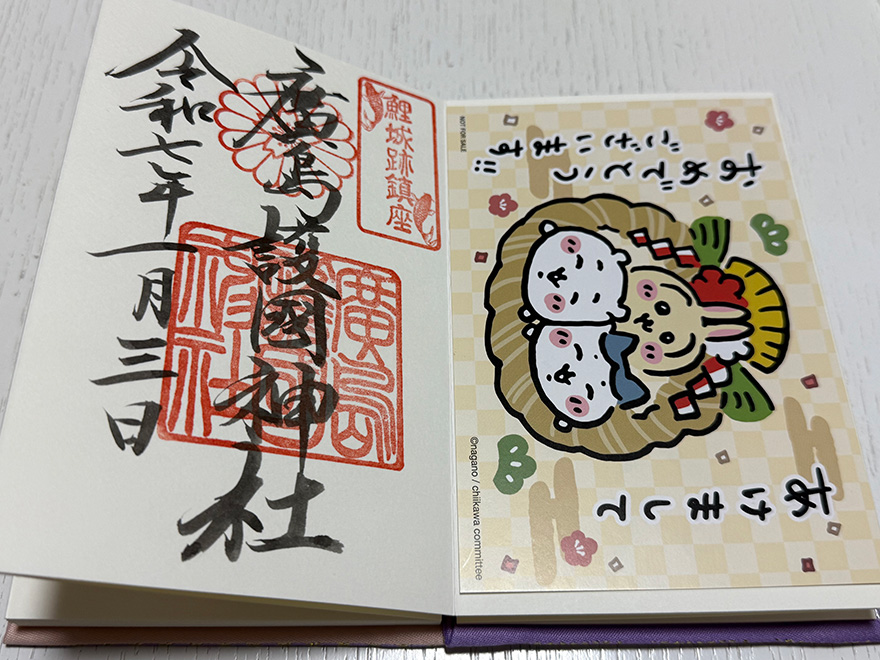 鯉城跡鎮座
廣島護國神社
令和七年一月三日
廣島護國神社
あけまして
おめでとう
ございます!!
NOT FOR SALE
©nagano / chiikawa committee